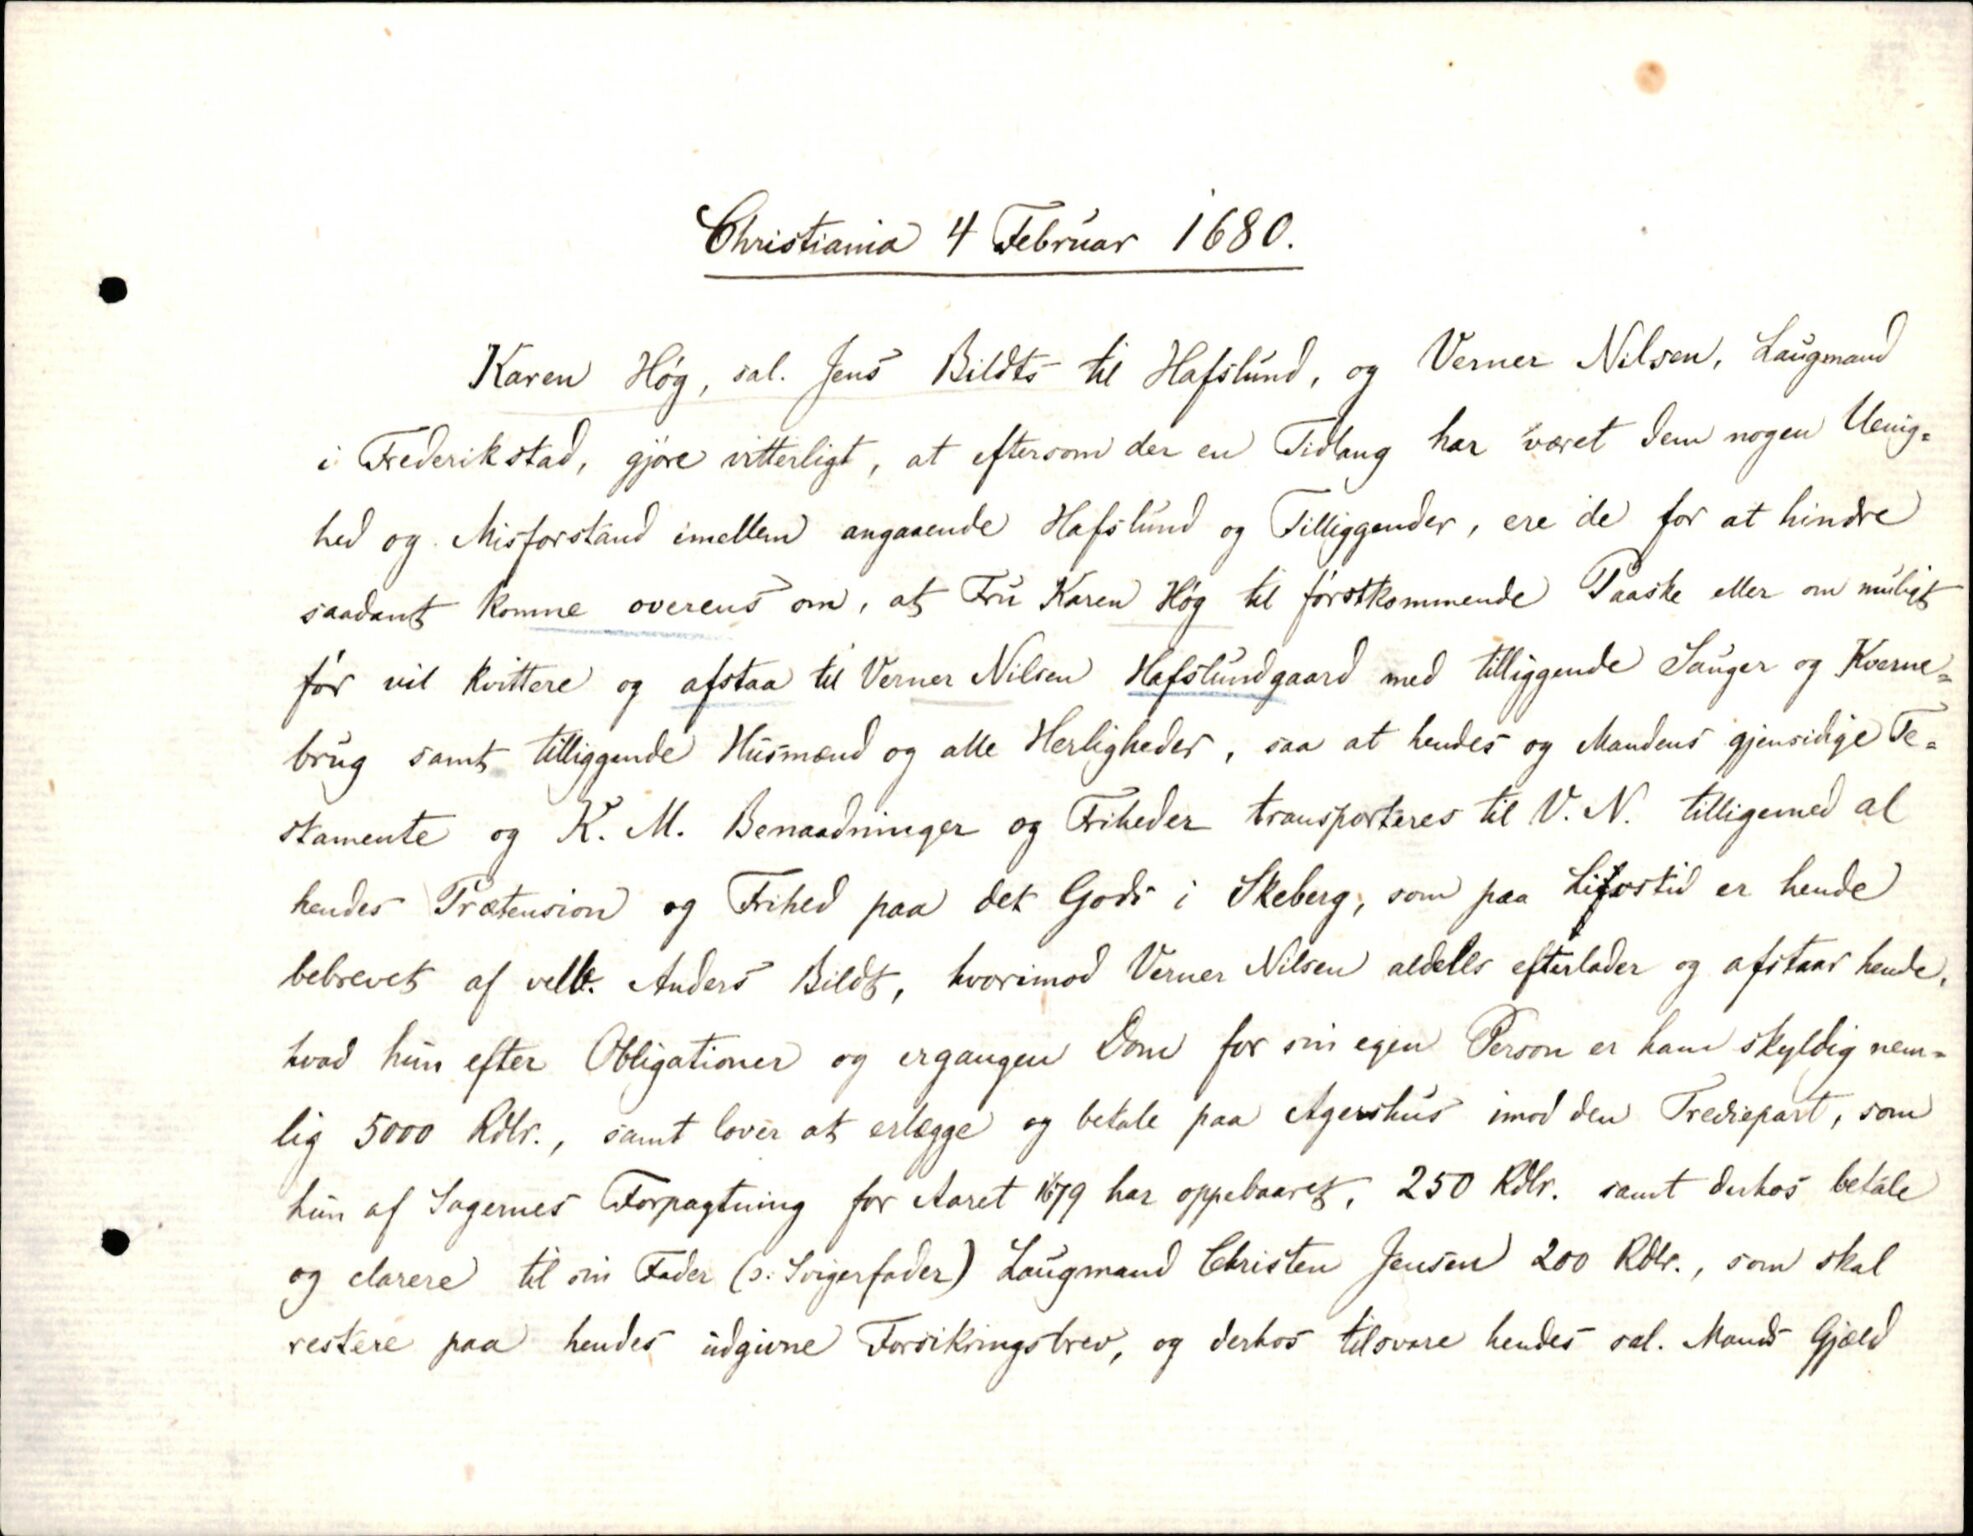 Christiania 4 Februar 1680.
Karen Høg, sal. Jens Bildts til Hafslund, og Verner Nilsen, Laugmand
i Frederikstad, gjøre vitterligt, at eftersom der en Tidlang har været dem nogen Uenig=
hed og Misforstand imellem angaaende Hafslund og Tilliggender, ere de for at hindre
saadant komne overens om, at Fru Karen Høg til førstkommende Paaske eller om muligt
før vil kvittere og afstaa til Verner Nilsen Hafslundgaard med tilliggende Sauger og Kverne=
brug samt tilliggende Husmænd og alle Herligheder, saa at hendes og Mandens gjensidige Te=
stamente og K. M. Benaadninger og Friheder transporteres til V. N. tilligemed al
hendes Prætension og Frihed paa det Gods i Skeberg, som paa Lifstid er hende
bebrevet af velb. Anders Bildt, hvorimod Verner Nilsen aldeles efterlader og afstaar hende,
hvad hun efter Obligationer og ergangen Dom for sin egen Person er ham skyldig nem=
lig 5000 Rdlr., samt lover at erlægge og betale paa Agershus imod den Trediepart, som
hun af Sagernes Forpagtning for Aaret 1679 har oppebaaret, 250 Rdlr. samt derhos betale
og clarere til sin Fader (ɔ: Svigerfader) Laugmand Christen Jensen 200 Rdlr., som skal
restere paa hendes udgivne Forsikringsbrev, og derhos tilsvare hendes sal. Mands Gjæld